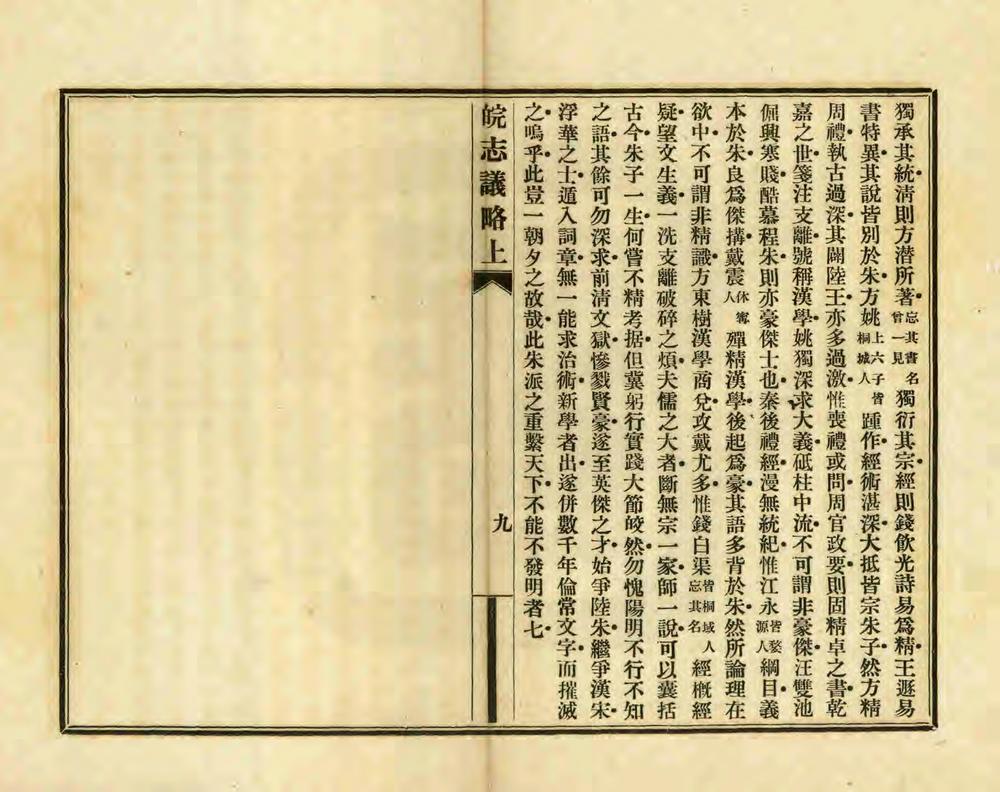 獨承其統清則方潛所著忘其書名曾一見獨衍其宗經則錢飲光詩易爲精王遯易
書特異其說皆別於朱方姚上六子皆桐城人踵作經術湛深大抵皆宗朱子然方精
周禮執古過深其闢陸王亦多過激惟喪禮或問周官政要則固精卓之書乾
嘉之世箋注支離號稱漢學姚獨深求大義砥柱中流不可謂非豪傑汪雙池
倔興寒賤酷慕程朱則亦豪傑士也秦後禮經漫無統紀惟江永皆婺源人綱目義
本於朱良爲傑搆戴震休寧人殫精漢學後起爲豪其語多背於朱然所論理在
欲中不可謂非精識方東樹漢學商兌攻戴尤多惟錢白渠皆桐城人忘其名經概經
疑望文生義一洗支離破碎之煩夫儒之大者斷無宗一家師一說可以囊括
古今朱子一生何嘗不精考据但冀躬行實踐大節皎然勿愧陽明不行不知
之語其餘可勿深求前清文獄慘戮賢豪遂至英傑之才始爭陸朱繼爭漢宋
浮華之士遁入詞章無一能求治術新學者出遂併數千年倫常文字而摧滅
之嗚乎此豈一朝夕之故哉此朱派之重繫天下不能不發明者七
皖志議略上
九